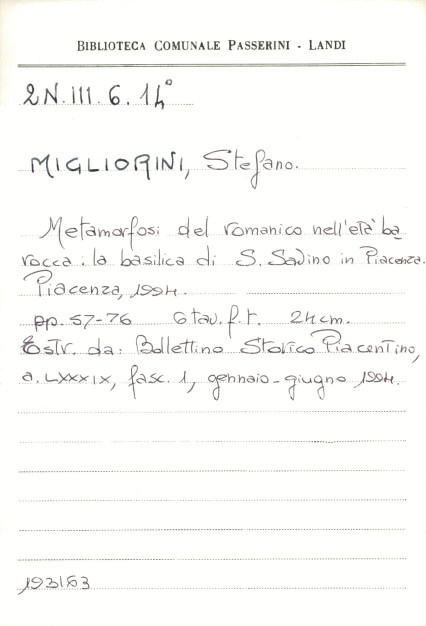 BIBLIOTECA COMUNALE PASSERINI - LANDI
2N.III.6.14°
MIGLIORINI, Stefano.
Metamorfosi del romanico nell'età ba
rocca : la basilica di S. Savino in Piacenza.
Piacenza, 1994.
pp. 57-76 6 tav. f.t. 24 cm.
Estr. da: Bollettino Storico Piacentino,
a. LXXXIX, fasc. 1, gennaio-giugno 1994.
193163